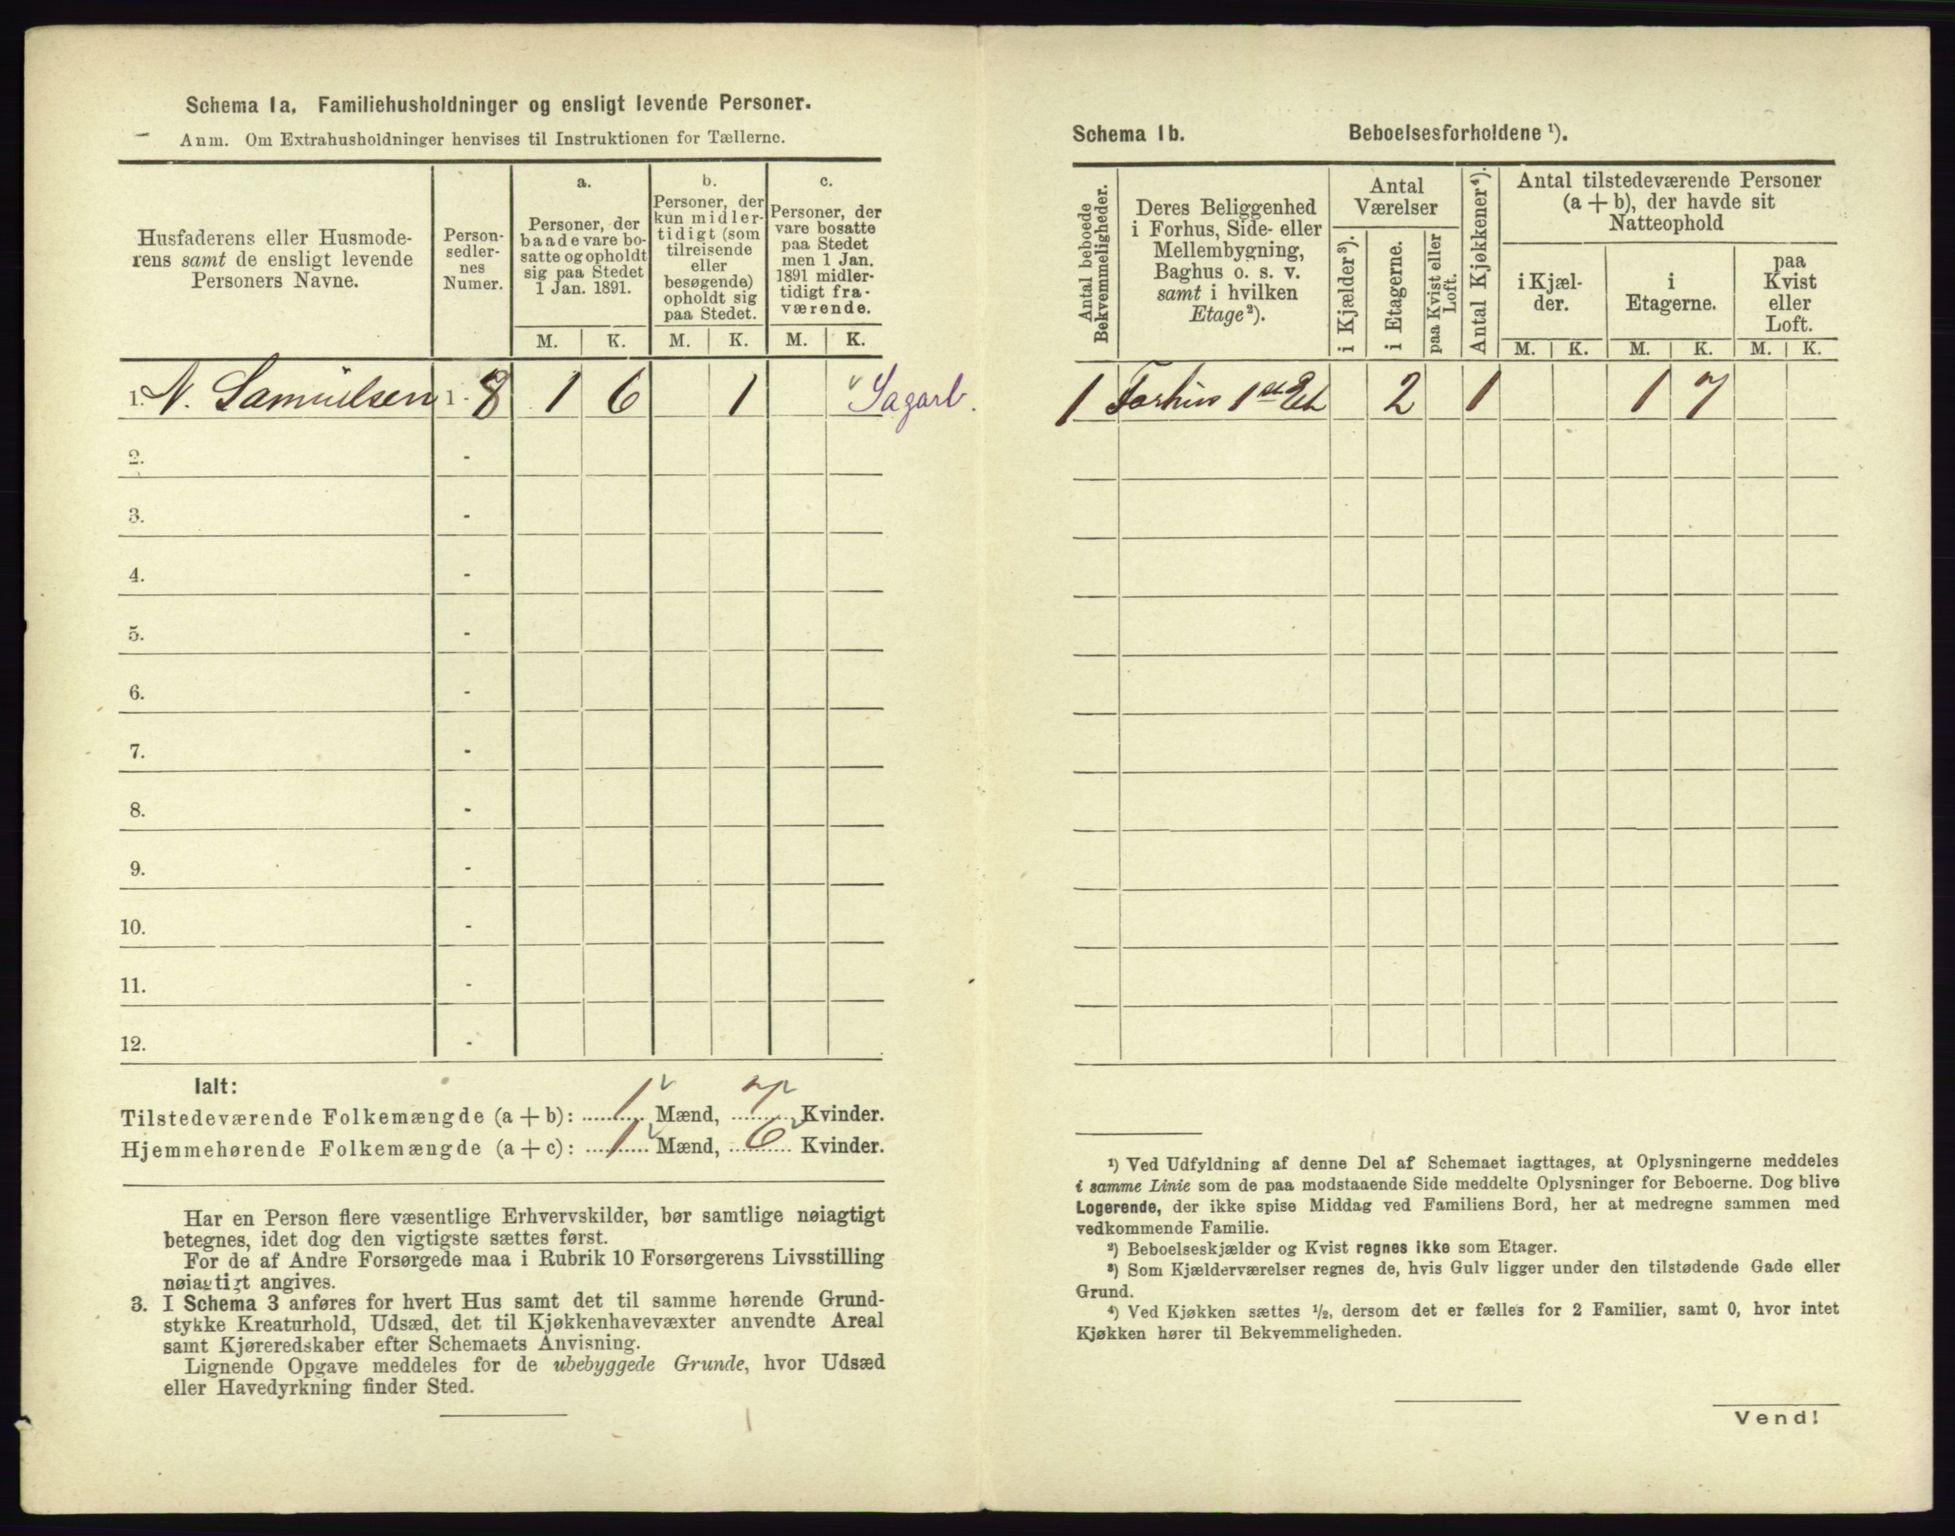 Schema 1a. Familiehusholdninger og ensligt levende Personer.
Anm. Om Extrahusholdninger henvises til Instruktionen for Tællerne.
Husfaderens eller Husmode-
rens samt de ensligt levende
Personers Navne.
Person-
sedler-
nes
Numer.
a.
Personer, der
baade vare bo-
satte og opholdt
sig paa Stedet
1 Jan. 1891.
b.
Personer, der
kun midler-
tidigt (som
tilreisende
eller
besøgende)
opholdt sig
paa Stedet.
c.
Personer, der
vare bosatte
paa Stedet
men 1 Jan.
1891 midler-
tidigt fra-
værende.
M. K. M. K. M. K.
1. N. Samuelsen 1 - 8 1 6 1 Sagarb.
2. -
3. -
4. -
5. -
6. -
7. -
8. -
9. -
10. -
11. -
12. -
Ialt:
Tilstedeværende Folkemængde (a + b): 1 Mænd, 7 Kvinder.
Hjemmehørende Folkemængde (a + c): 1 Mænd, 6 Kvinder.
Har en Person flere væsentlige Erhvervskilder, bør samtlige nøiagtigt
betegnes, idet dog den vigtigste sættes først.
For de af Andre Forsørgede maa i Rubrik 10 Forsørgerens Livsstilling
nøiagtigt angives.
3. I Schema 3 anføres for hvert Hus samt det til samme hørende Grund-
stykke Kreaturhold, Udsæd, det til Kjøkkenhavevæxter anvendte Areal
samt Kjøreredskaber efter Schemaets Anvisning.
Lignende Opgave meddeles for de ubebyggede Grunde, hvor Udsæd
eller Havedyrkning finder Sted.
Schema 1b. Beboelsesforholdene ¹).
Antal beboede
Bekvemmeligheder.
Deres Beliggenhed
i Forhus, Side- eller
Mellembygning,
Baghus o. s. v.
samt i hvilken
Etage²).
Antal
Værelser
i Kjælder³).
i Etagerne.
paa Kvist eller
Loft.
Antal Kjøkkener⁴).
Antal tilstedeværende Personer
(a + b), der havde sit
Natteophold
i Kjæl-
der.
i
Etagerne.
paa
Kvist
eller
Loft.
M. K. M. K. M. K.
1 Forhus 1ste Et 2 1 1 7
¹) Ved Udfyldning af denne Del af Schemaet iagttages, at Oplysningerne meddeles
i samme Linie som de paa modstaaende Side meddelte Oplysninger for Beboerne. Dog blive
Logerende, der ikke spise Middag ved Familiens Bord, her at medregne sammen med
vedkommende Familie.
²) Beboelseskjælder og Kvist regnes ikke som Etager.
³) Som Kjælderværelser regnes de, hvis Gulv ligger under den tilstødende Gade eller
Grund.
⁴) Ved Kjøkken sættes ½, dersom det er fælles for 2 Familier, samt 0, hvor intet
Kjøkken hører til Bekvemmeligheden.
Vend!